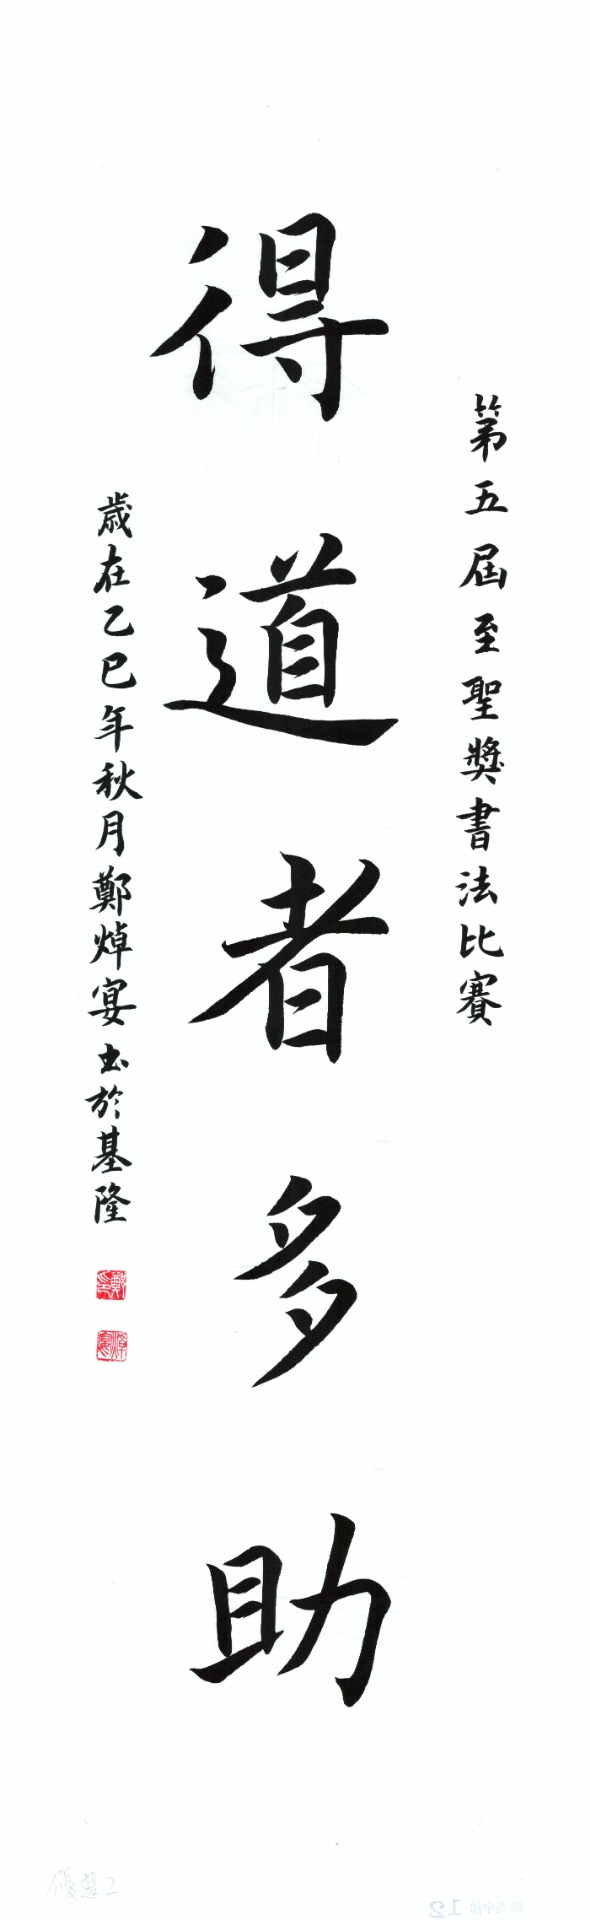 第五屆至聖獎書法比賽
得道者多助
歲在乙巳年秋月鄭焯宴书於基隆
優選2